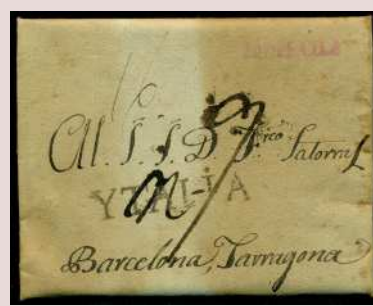 Al. S. S. D. F.rco Satorra
YTALIA
Barcelona, Tarragona